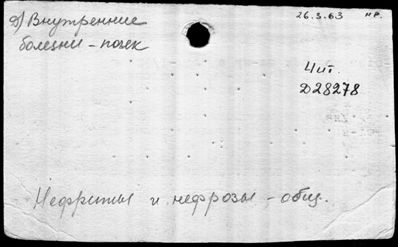 д) Внутренние
болезни - почек
26.3.63 нр.
Чит.
D28278
Нефриты и нефрозы - общ.